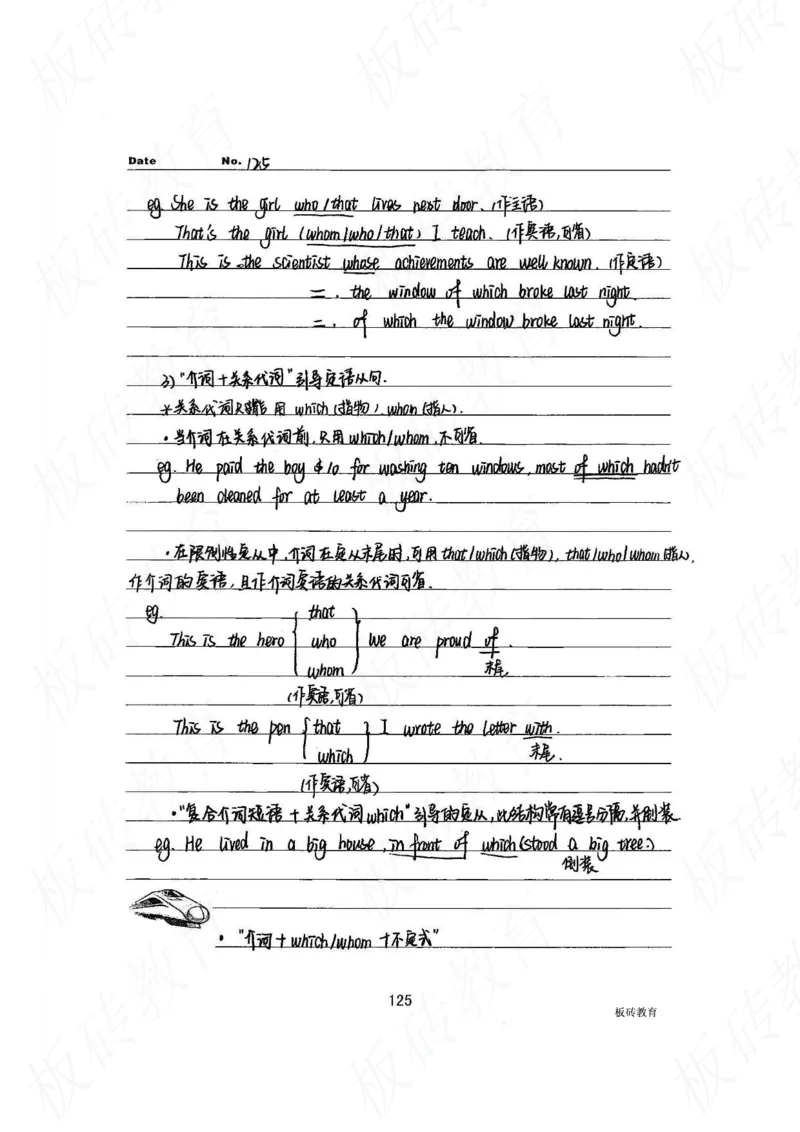 Date No. 125
eg. She is the girl who/that lives next door. (作主语)
That's the girl (whom/who/that) I teach. (作宾语,可省)
This is the scientist whose achievements are well known. (作定语)
= , the window of which broke last night.
= , of which the window broke last night.
2) "介词+关系代词"引导定语从句.
*关系代词只能用 which (指物), whom (指人).
·当介词在关系代词前,只用which/whom,不可省.
eg. He paid the boy $10 for washing ten windows, most of which hadn't
been cleaned for at least a year.
·在限制性定从中,介词在定从末尾时,可用that/which(指物), that/who/whom(指人),
作介词的宾语,且作介词宾语的关系代词可省.
eg.
that
This is the hero who we are proud of.
whom 末尾
(作宾语,可省)
This is the pen that I wrote the letter with.
which 末尾.
(作宾语,可省)
·"复合介词短语+关系代词which"引导的定从,此结构常有逗号分隔,并倒装.
eg. He lived in a big house, in front of which (stood a big tree.)
倒装
· "介词+which/whom+不定式"
125
板砖教育